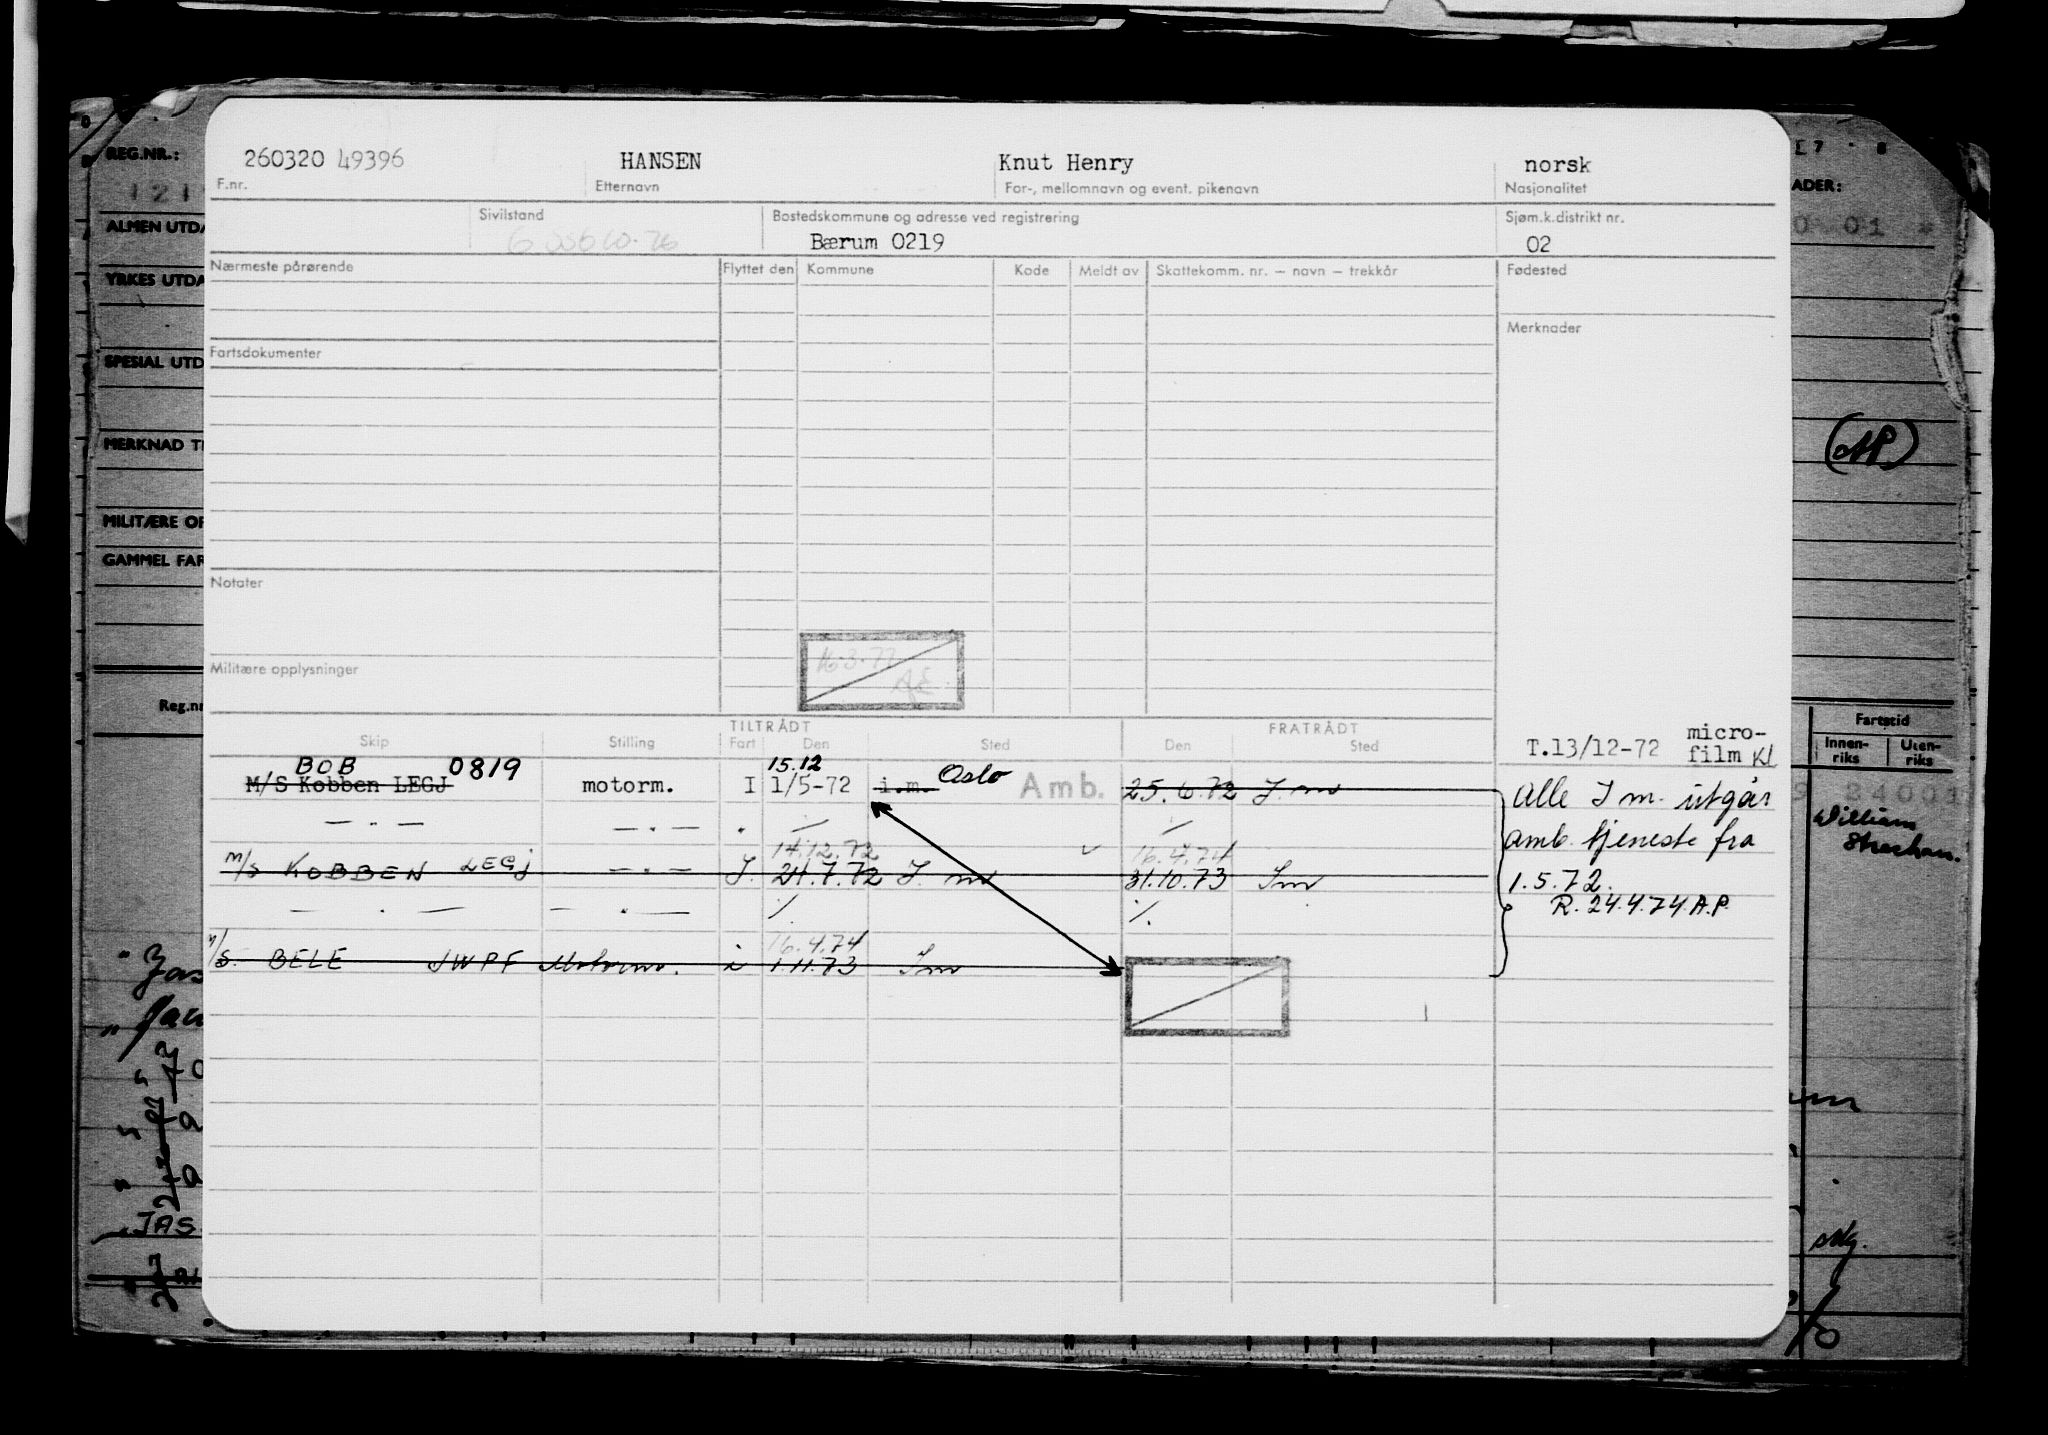 260320 49396 HANSEN Knut Henry norsk
F.nr. Etternavn For-, mellomnavn og event. pikenavn Nasjonalitet
Sivilstand Bostedskommune og adresse ved registrering Sjøm.k.distrikt nr.
Bærum 0219 02
Nærmeste pårørende Flyttet den Kommune Kode Meldt av Skattekomm. nr. — navn — trekkår Fødested
Merknader
Fartsdokumenter
Notater
Militære opplysninger
16.3.77
TILTRÅDT FRATRÅDT
Skip Stilling Fart Den Sted Den Sted
T.13/12-72 micro-
film Kl
BOB 0819 15.12
M/S Kobben LEGJ motorm. I 1/5-72 i.m. Oslo Amb. 25.6.72 I m
— . — — . — . ⁒ ⁒
14.12.72 16.4.74
M/S KOBBEN LEGJ — . — I. 24.7.72 I. m 31.10.73 Im
— . — — . — ⁒ ⁒
16.4.74
M/S BELE JWPF Motorm. i 1.11.73 Im
Alle I m. utgår
amb. tjeneste fra
1.5.72.
R. 24.4.74 A.P.
REG.NR.:
121
ALMEN UTDA
YRKES UTDA
SPESIAL UTD
MERKNAD T
MILITÆRE OP
GAMMEL FAR
Reg.n
JAS
E 7 8
ADER:
0 01 *
Fartstid
Innen-
riks
Uten-
riks
24001
William
Strachan.